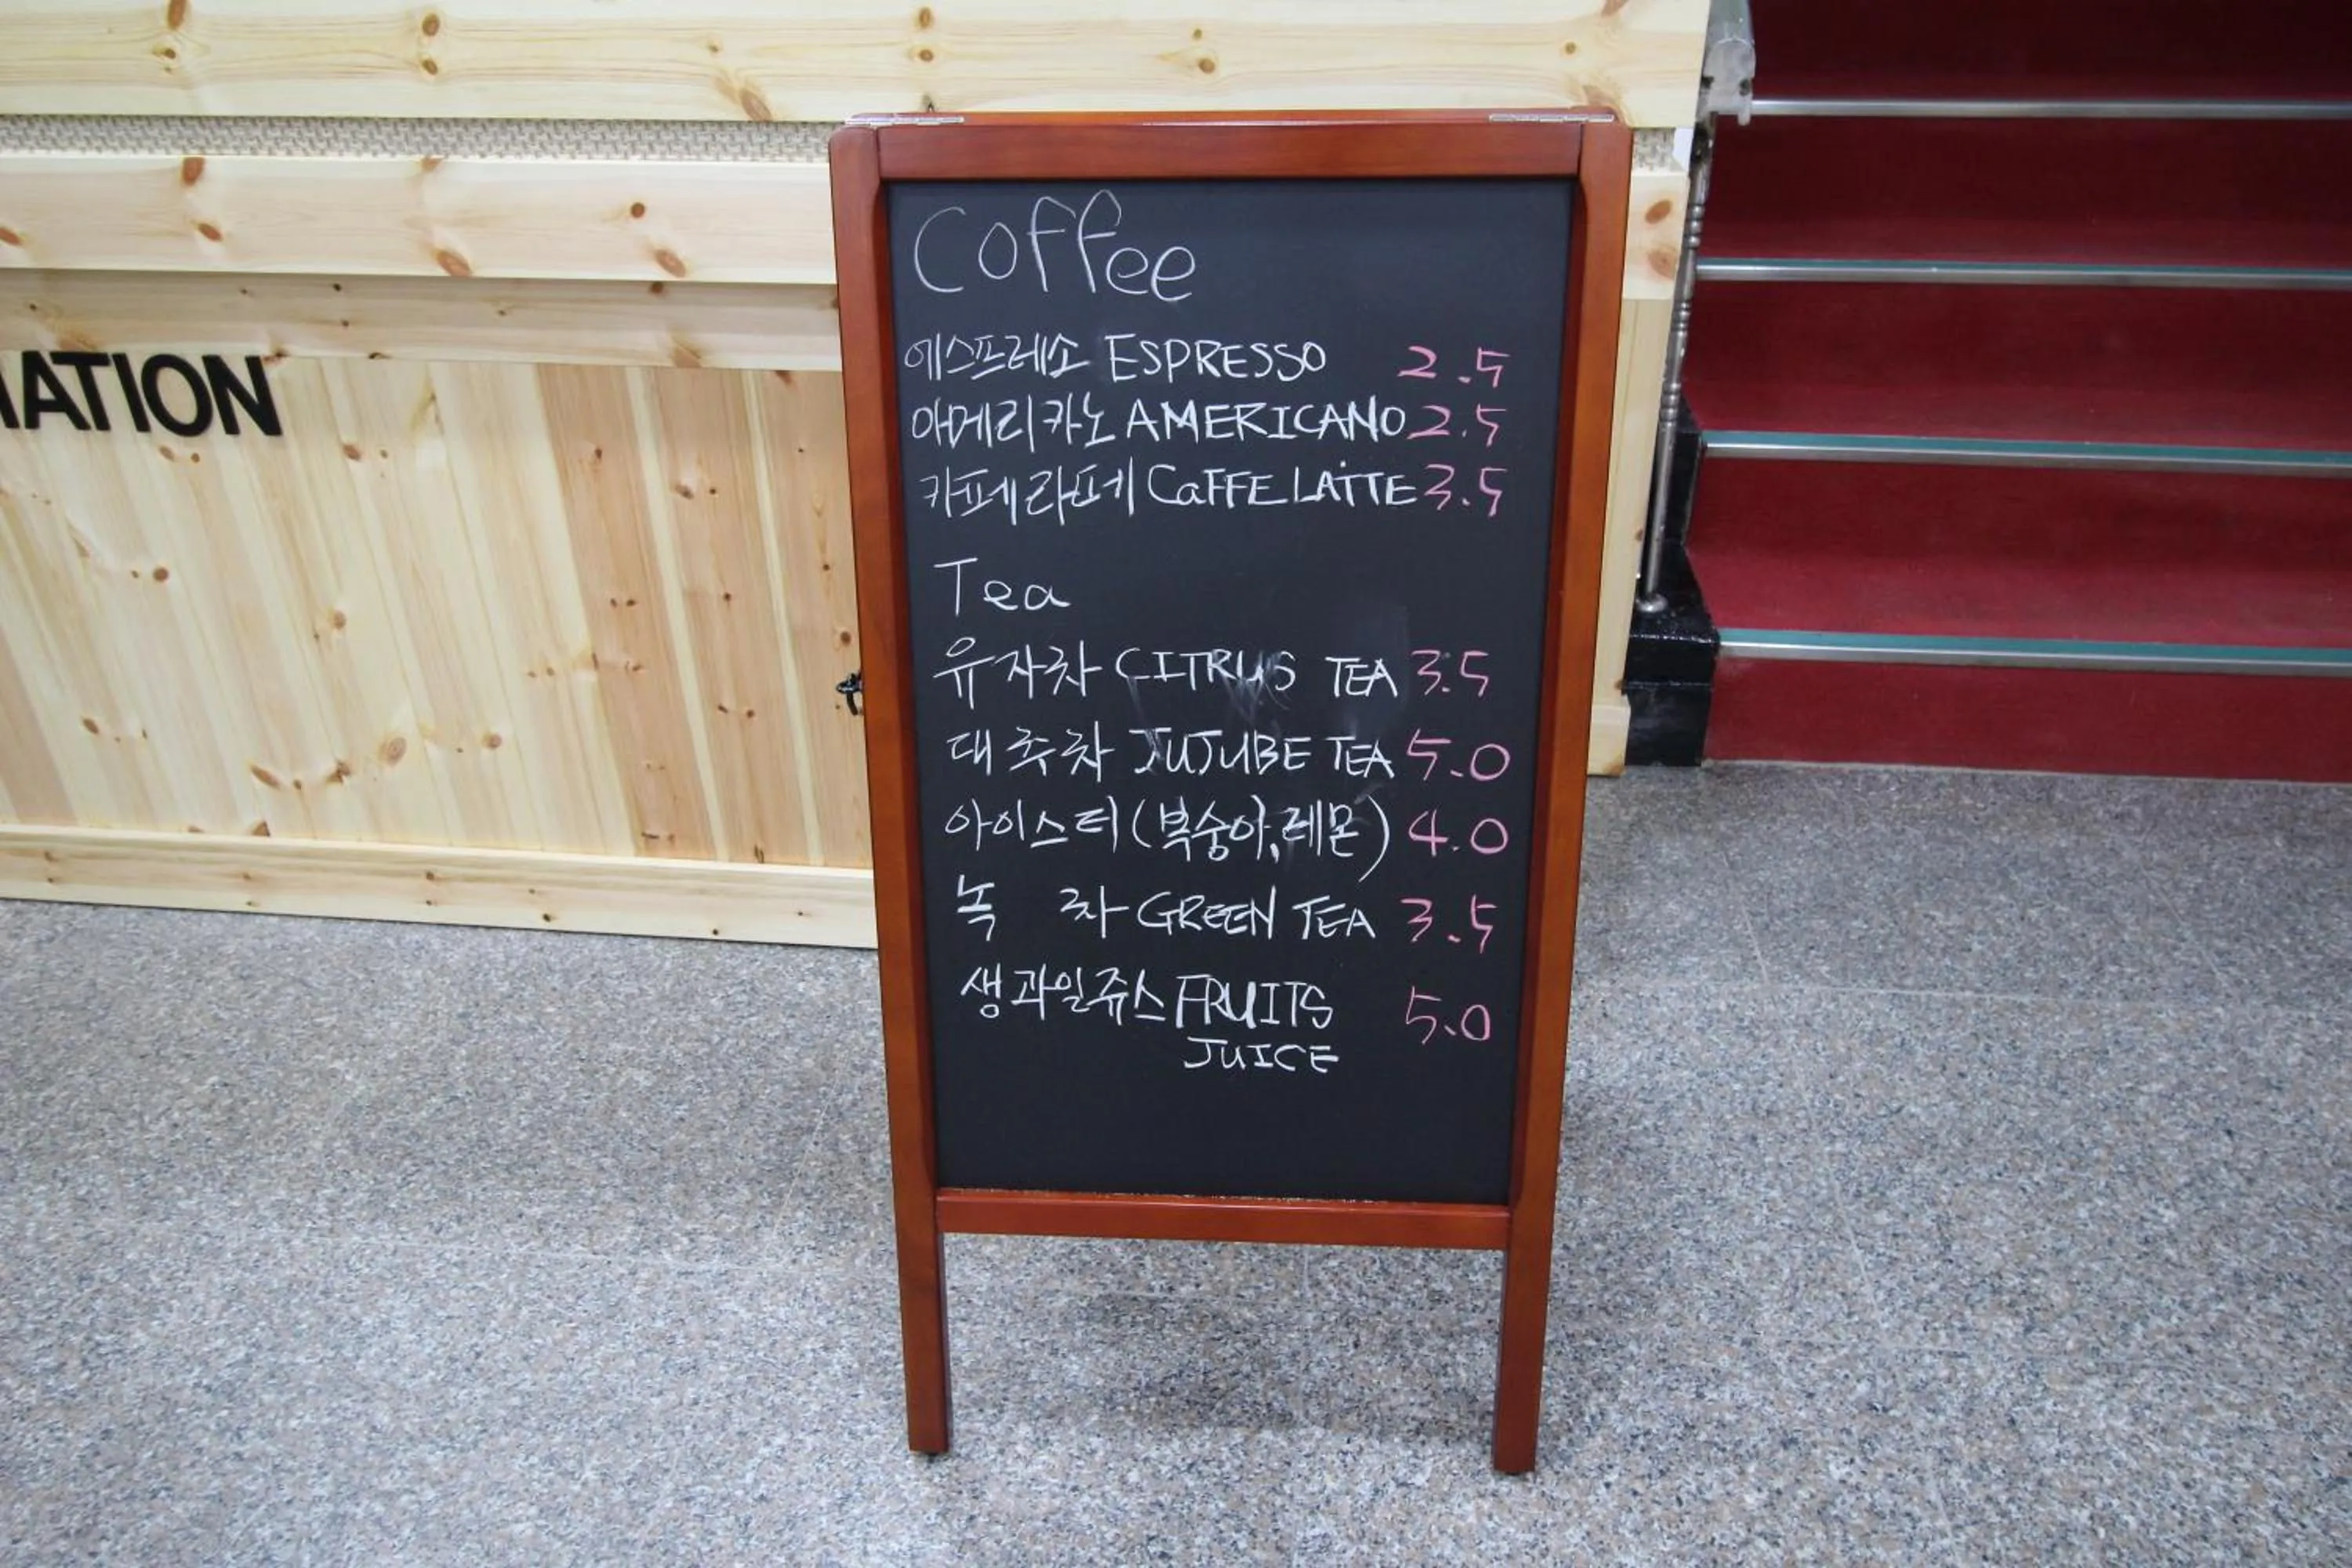 Coffee
에스프레소 ESPRESSO 2.5
아메리카노 AMERICANO 2.5
카페라떼 CaFFE LATTE 3.5
Tea
유자차 CITRUS TEA 3.5
대추차 JUJUBE TEA 5.0
아이스티(복숭아,레몬) 4.0
녹 차 GREEN TEA 3.5
생과일쥬스 FRUITS 5.0
JUICE
MATION